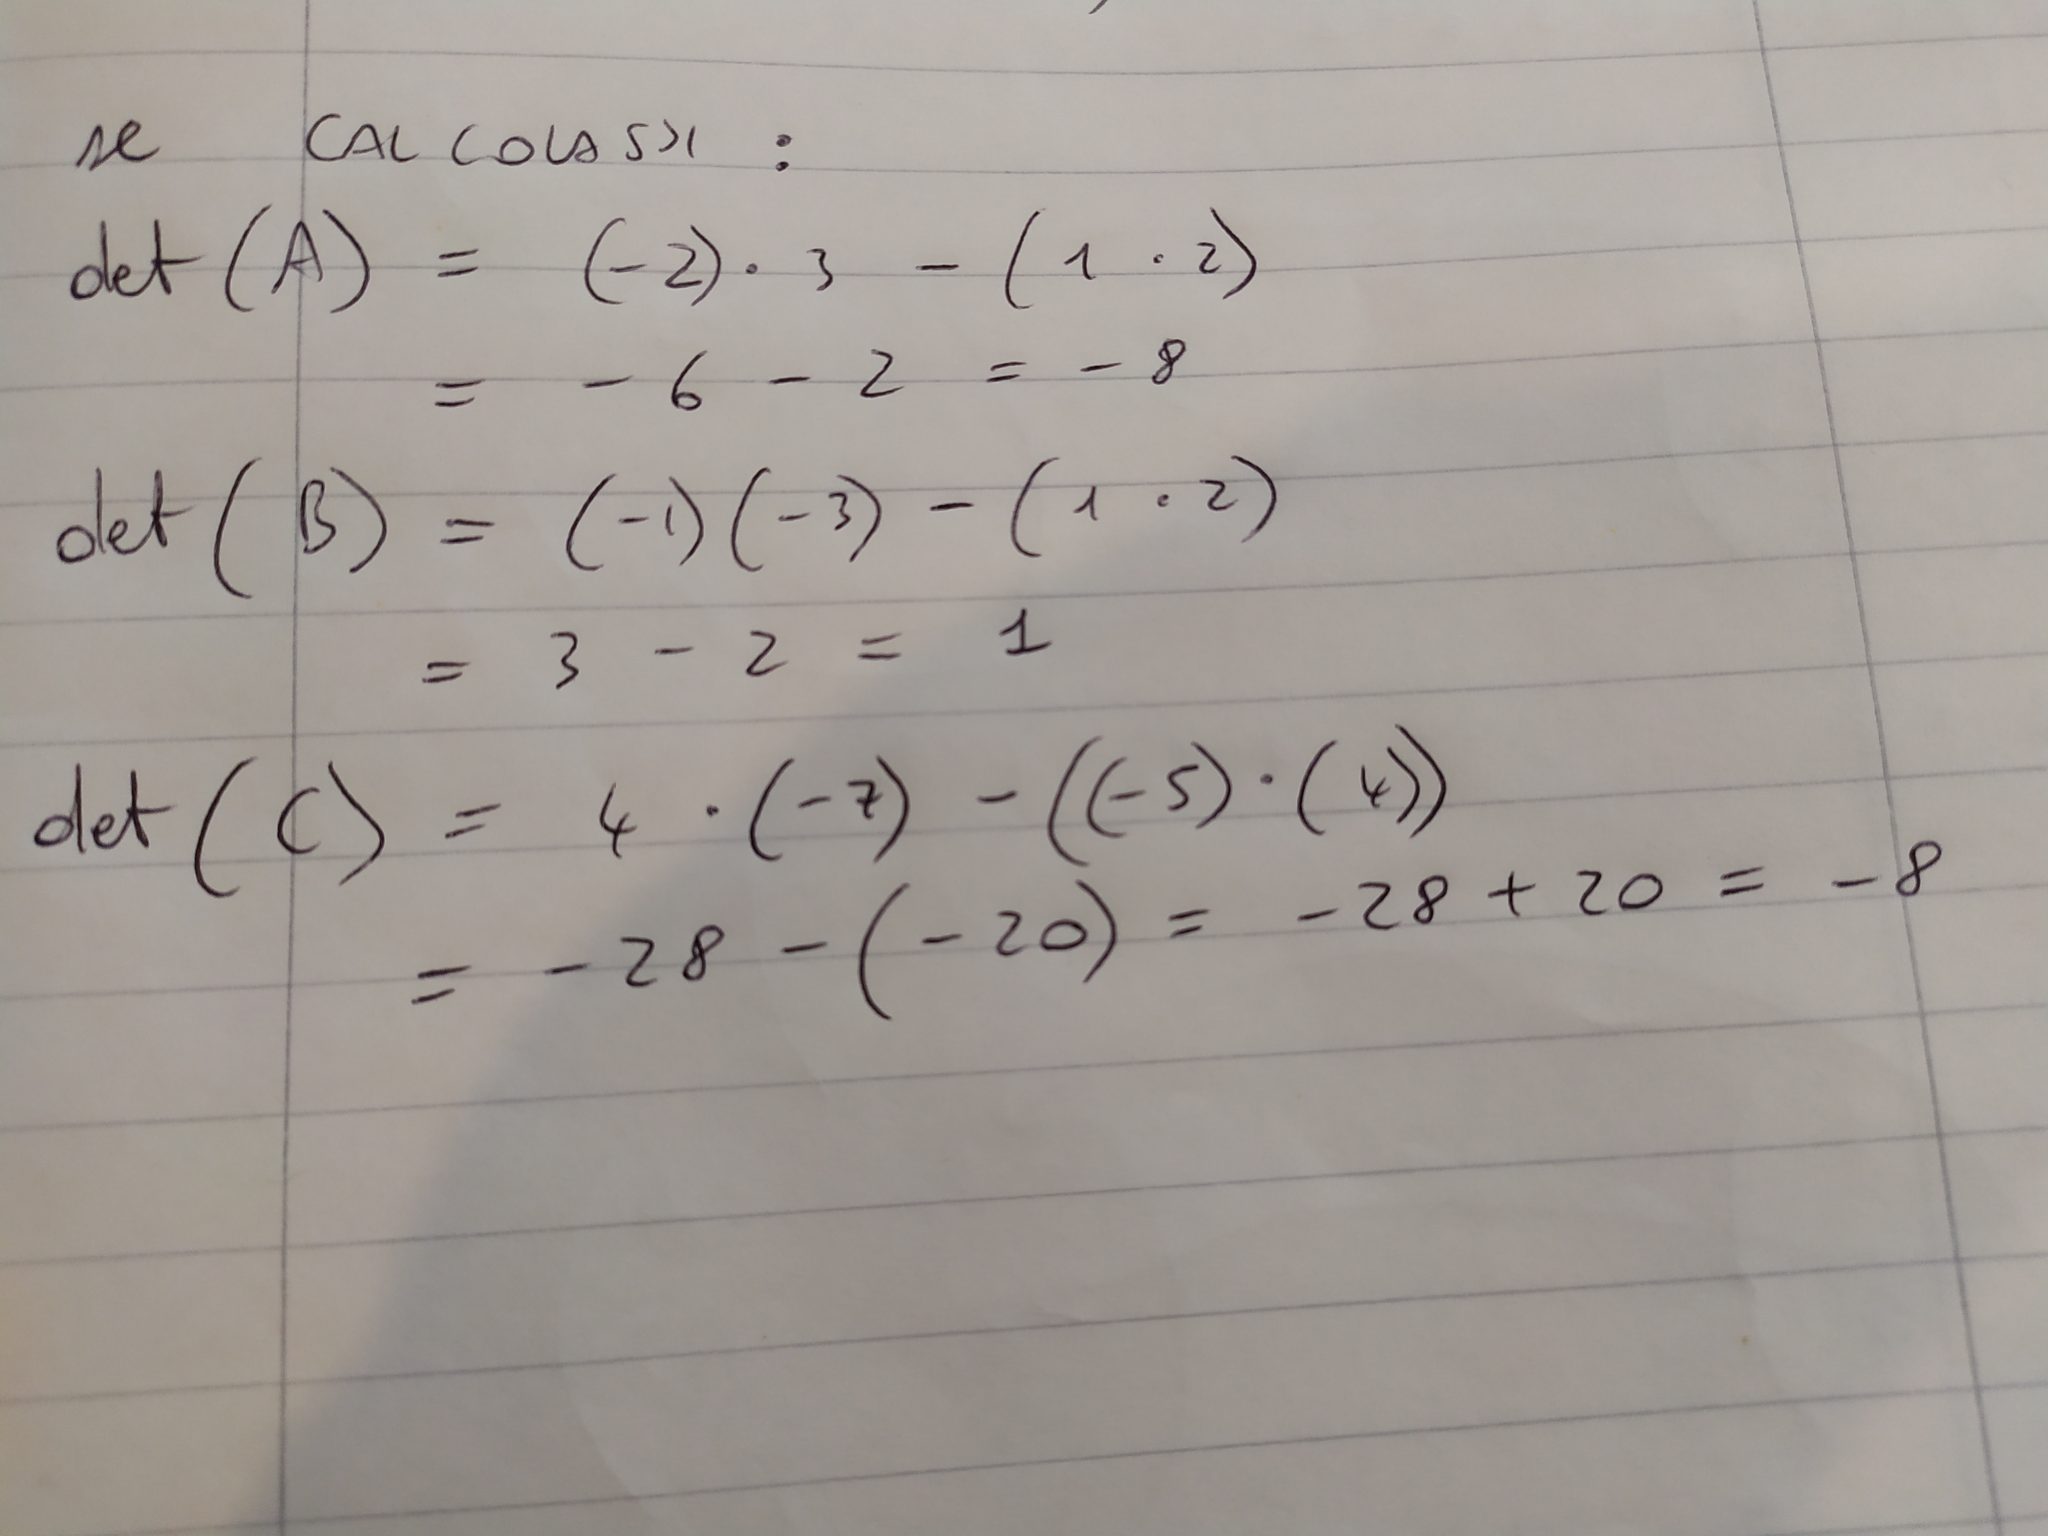 se CALCOLASSI :
det (A) = (-2) · 3 - (1 · 2)
= - 6 - 2 = - 8
det (B) = (-1) (-3) - (1 · 2)
= 3 - 2 = 1
det (C) = 4 · (-7) - ((-5) · (4))
= - 28 - (- 20) = - 28 + 20 = - 8